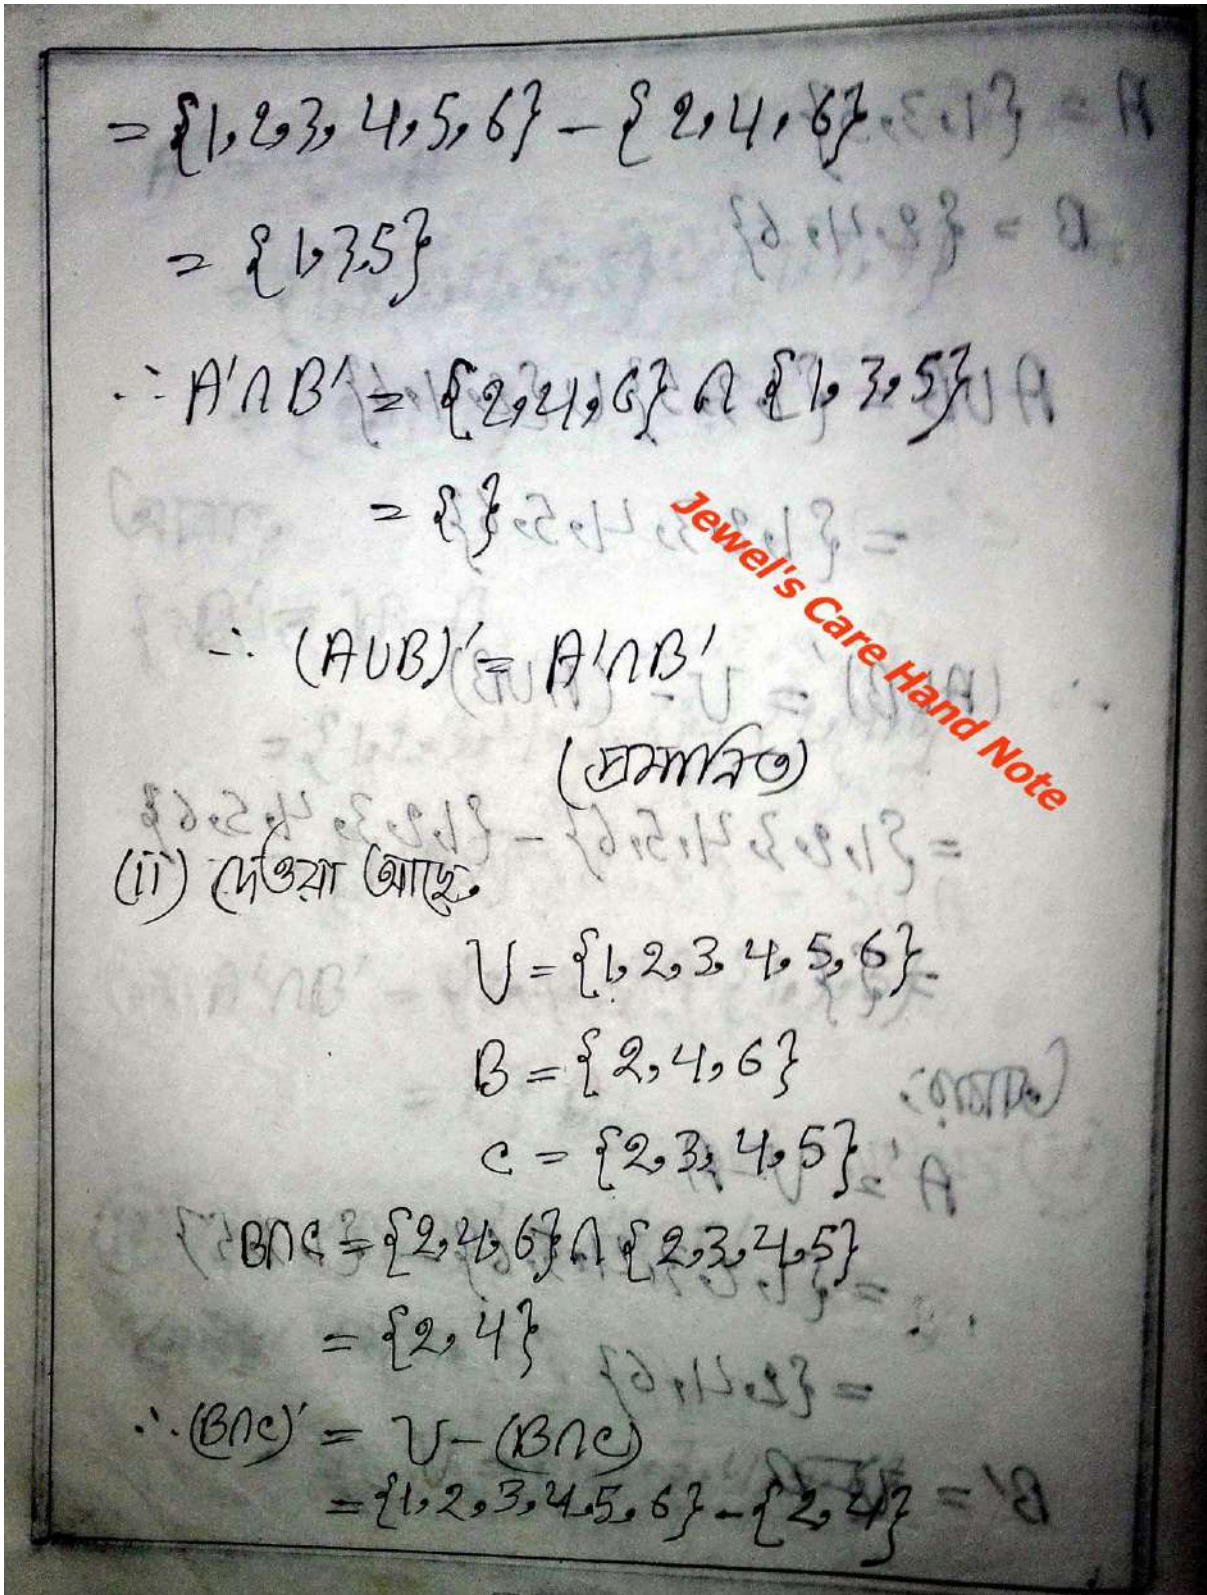 = {1, 2, 3, 4, 5, 6} - {2, 4, 6}
= {1, 3, 5}
∴ A' ∩ B' = {2, 4, 6} ∩ {1, 3, 5}
= {}
Jewel's Care Hand Note
∴ (A∪B)' = A'∩B'
(প্রমানিত)
(ii) দেওয়া আছে,
U = {1, 2, 3, 4, 5, 6}
B = {2, 4, 6}
C = {2, 3, 4, 5}
B∩C = {2, 4, 6} ∩ {2, 3, 4, 5}
= {2, 4}
∴ (B∩C)' = U - (B∩C)
= {1, 2, 3, 4, 5, 6} - {2, 4}